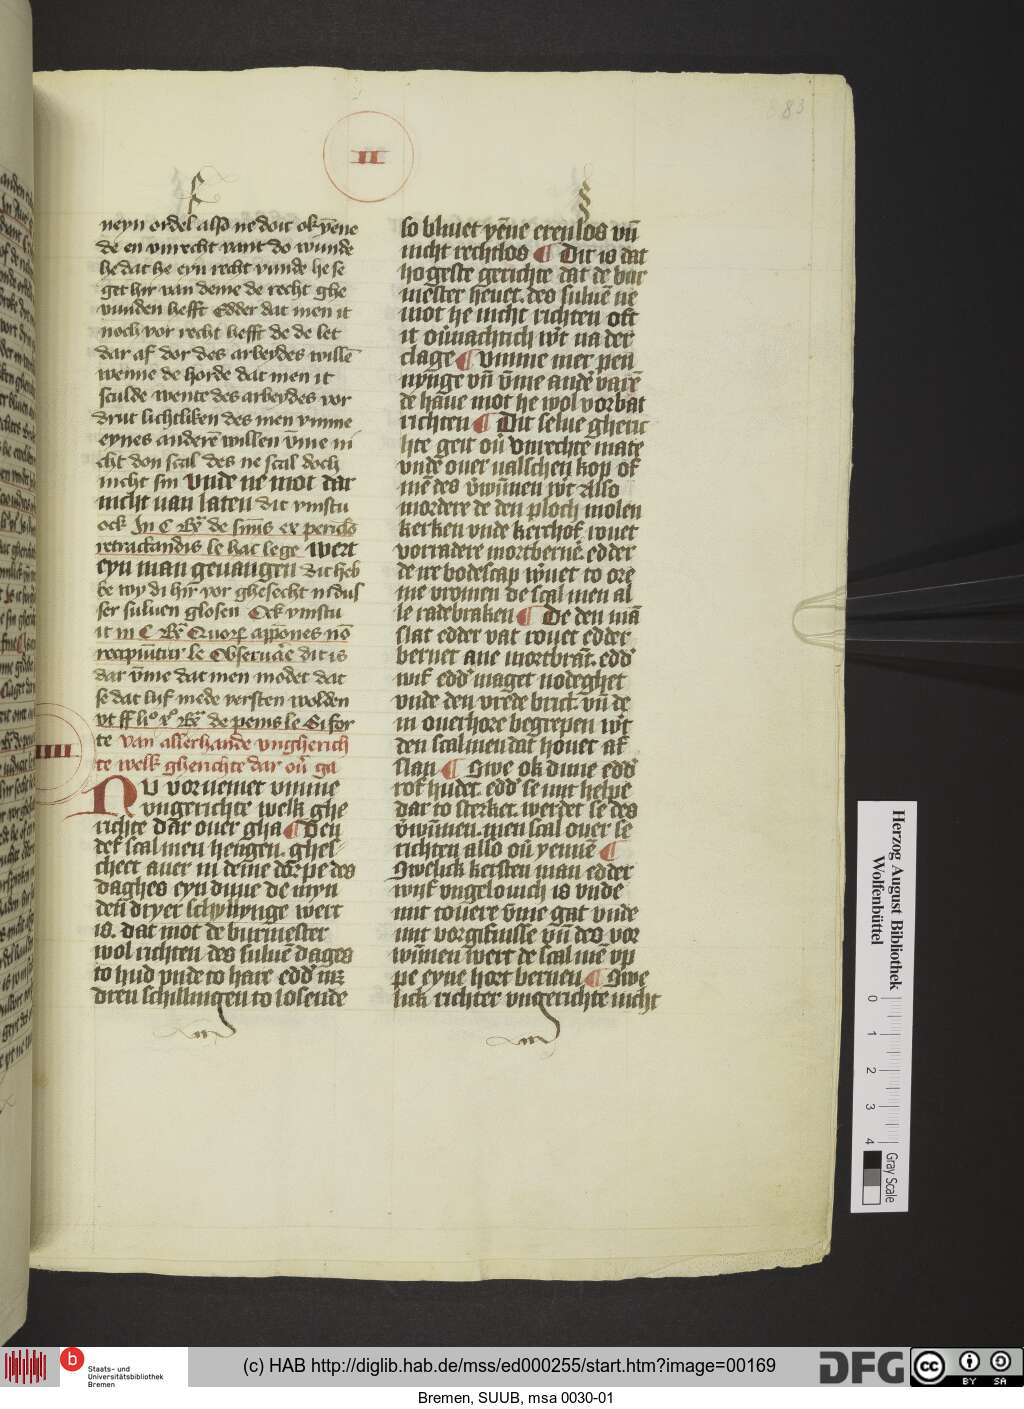 83
II
neyn ordel also ne doit ok yēne
de en vnrecht vant do wunde
he dat he eyn recht vunde he se
get hir van deme de recht ghe
vunden hefft Edder dat men it
noch vor recht hefft de de let
dar af dor des arbeydes willē
wenne de horde dat men it
sculde wente des arbeydes vor
drut lichtliken des men vmme
eynes anderē willen v̄me ni
cht don scal des ne scal doch
nicht sin vnde ne mot dar
nicht van laten dit vmstu
ock In C Rꝛ de sm̄s ex periclo
retractandis le hac lege wert
eyn man geuangen dit heb
be wy di hir vor ghesecht in dus
ser suluen glosen Ock vinstu
it in C Rꝛ Quorꝝ appōnes nō
recipiūtur le Obseruāe dit is
dar v̄me dat men modet dat
se dat lif mede versten wolden
vt ff li° x° Rꝛ de penis le Si for
te van allerhande vngherich
te welk gherichte dar ou̅ ga
IIII
NU vornemet vmme
vngerichte welk ghe
richte dar ouer gha ¶ Den
def scal men hengen. ghes
cheet auer in deme dorpe des
daghes eyn duue de myn
den̄ dryer schyllynge wert
is. dat mot de burmester
wol richten des suluē dages
to hud vnde to hare edd̄ mꝫ
dren schillingen to losende
so bliuet yēne erenlos vn̄
nicht rechtlos ¶ Dit is dat
hogeste gerichte dat de bur
mester heuet. des suluē ne
mot he nicht richten oft
it ou̅nachtich w̄t na der
clage ¶ vmme mer pen
nynge vn̄ v̄me ander̄ varē
de haue mot he wol vorbat
richten ¶ Dit selue gheric
hte geit ou̅ vnrechte mate
vnde ouer valschen kop of
mē des v̄wūnen w̄t Also
mordere de den ploch molen
kerken vnde kerchof rouet
vorradere mortberner̄ edder
de ire bodescap w̄uet to ore
me vromen de scal men al
le radebraken ¶ De den mā
slat edder vat rouet edder
bernet ane mortbrāt. edd̄
wif edd̄ maget nodeghet
vnde den vrede brict. vn̄ de
in ouerhore begrepen w̄t
den scal men dat houet af
slan ¶ Swe ok duue edd̄
rof hudet. edd̄ se mit helpe
dar to sterket. werdet se des
v̄wūnen. men scal ouer se
richten also ou̅ yennē ¶
Swelick kersten man edder
wyf vngelouich is vnde
mit touere v̄me gat vnde
mit vorgifnisse vn̄ des vor
wūnen wert de scal mē vp
pe eyne hort bernen ¶ Swe
lick richter vngerichte nicht
Herzog August Bibliothek
Wolfenbüttel
0 1 2 3 4
Gray Scale
b
Staats- und
Universitätsbibliothek
Bremen
(c) HAB http://diglib.hab.de/mss/ed000255/start.htm?image=00169
DFG
cc
BY SA
Bremen, SUUB, msa 0030-01